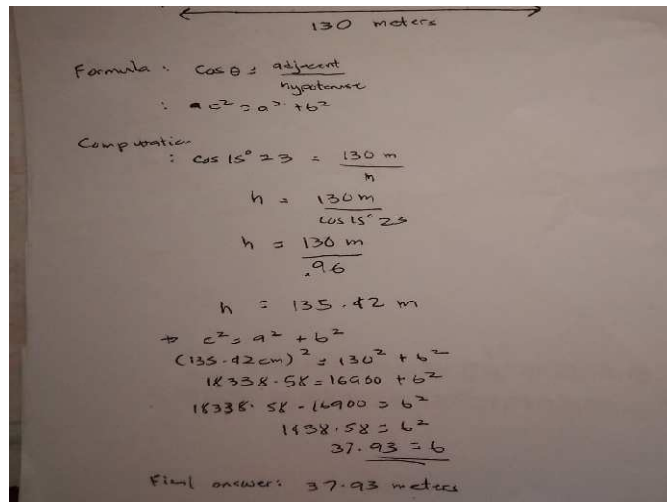 130 meters
Formula : Cos θ = adjacent / hypotenuse
: c² = a² + b²
Computation
: cos 15° 23 = 130 m / h
h = 130 m / cos 15° 23
h = 130 m / .96
h = 135.42 m
→ c² = a² + b²
(135.42cm)² = 130² + b²
18338.58 = 16900 + b²
18338.58 - 16900 = b²
1438.58 = b²
37.93 = b
Final answer: 37.93 meters